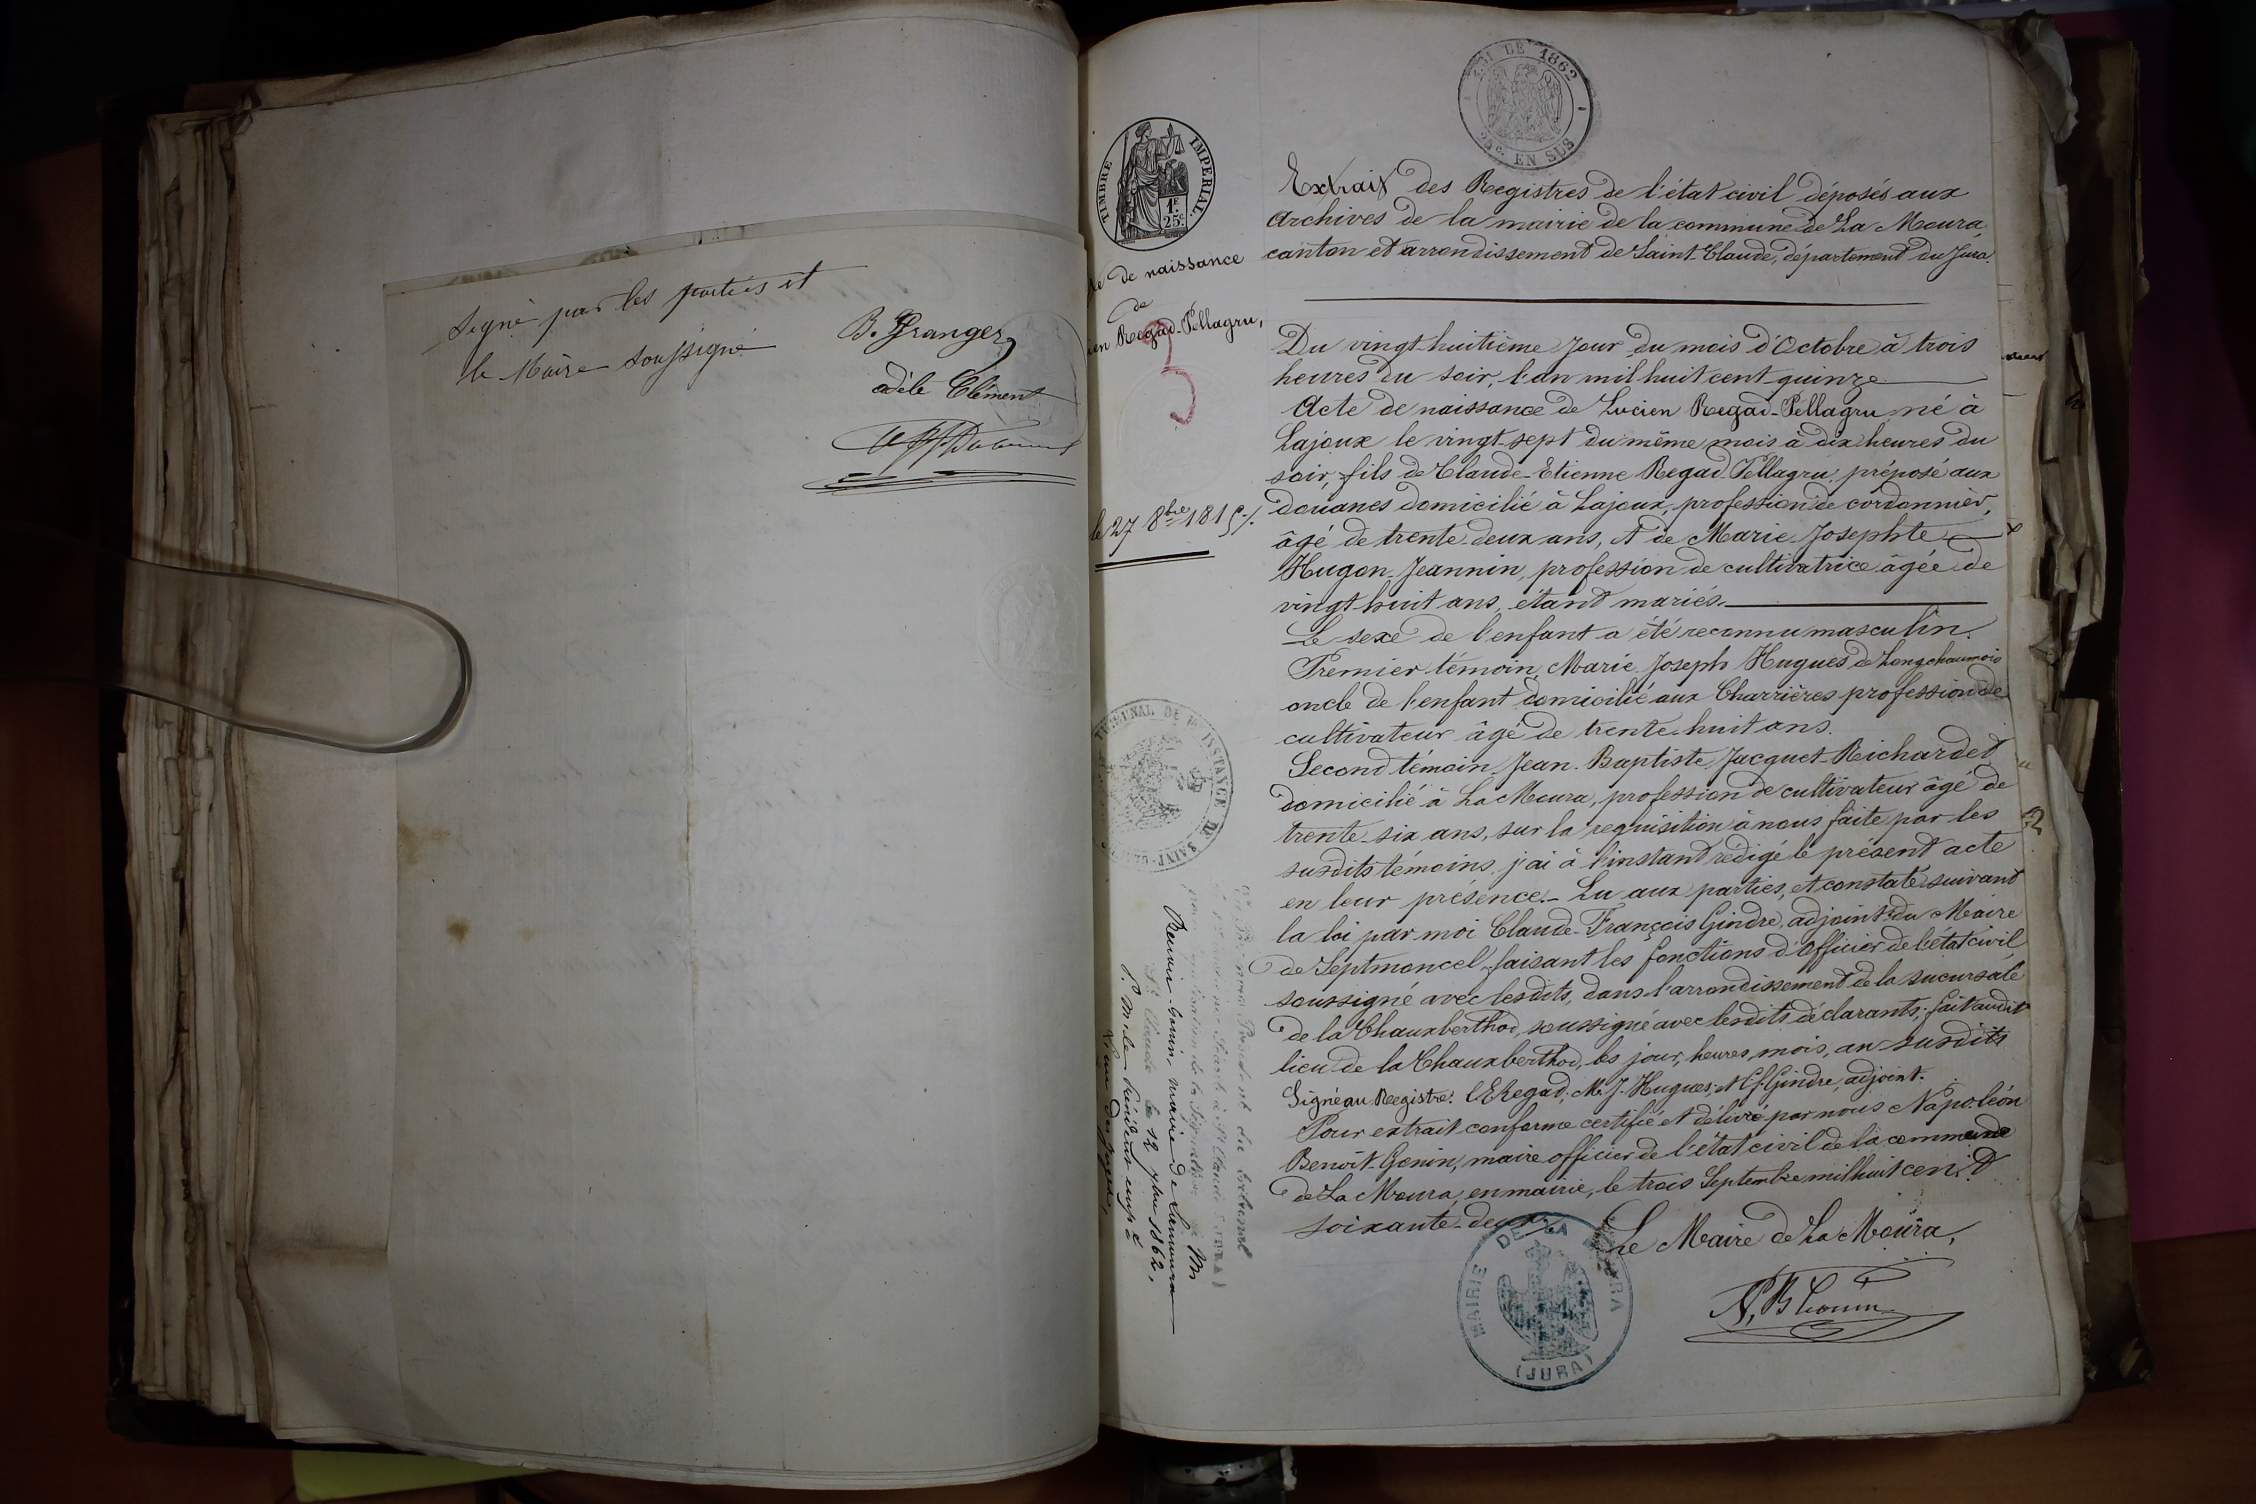 Signé par les parties et
le Maire soussigné
B. Granger
adèle Clément
LOI DE 1862
EN SUS
TIMBRE IMPERIAL.
1F.
25c.
de naissance
de
Regad-Pellagru,
le 27 8bre 1815
3
Extrait des Registres de l'état civil déposés aux
Archives de la mairie de la commune de La Moura,
canton et arrondissement de Saint-Claude, département du Jura.
Du vingt-huitième jour du mois d'Octobre à trois
heures du soir, l'an mil huit cent quinze
Acte de naissance de Lucien Regad-Pellagru né à
Lajoux le vingt-sept du même mois à dix heures du
soir, fils de Claude-Etienne Regad Pellagru, préposé aux
douanes domicilié à Lajoux, profession de cordonnier,
âgé de trente-deux ans, et de Marie Josephte
Hugon-Jeannin, profession de cultivatrice âgée de
vingt-huit ans, étant mariés.
Le sexe de l'enfant a été reconnu masculin.
Premier témoin, Marie Joseph Hugues de Longchaumois
oncle de l'enfant domicilié aux Charrières profession de
cultivateur âgé de trente-huit ans.
Second témoin Jean-Baptiste Jacquet-Richardet
domicilié à La Moura, profession de cultivateur âgé de
trente-six ans, sur la requisition à nous faite par les
susdits témoins j'ai à l'instant redigé le présent acte
en leur présence. Lu aux parties, et constaté suivant
la loi par moi Claude-François Gindre, adjoint du Maire
de Septmoncel, faisant les fonctions d'Officier de l'état civil
soussigné avec lesdits, dans l'arrondissement de la sucursale
de la Chauxberthod, soussigné avec lesdits déclarants; fait audit
lieu de la Chauxberthod, les jour, heures, mois, an susdits
Signé au Registre: C. E. Regad; M. J. Hugues; et C. f. Gindre, adjoint.
Pour extrait conforme certifié et délivré par nous Napoléon
Benoît-Gonin, maire officier de l'état civil de la commune
de La Moura, en mairie, le trois Septembre mil huit cent
soixante-deux.
Le Maire de La Moura,
N. B Gonin
MAIRIE DE LA MOURA
(JURA)
TRIBUNAL DE 1re INSTANCE DE SAINT-CLAUDE
Président du tribunal
de la Signature de M
Benoit-Gonin, maire de Lamoura
St Claude le 12 7bre 1862,
P. M. le Président empé